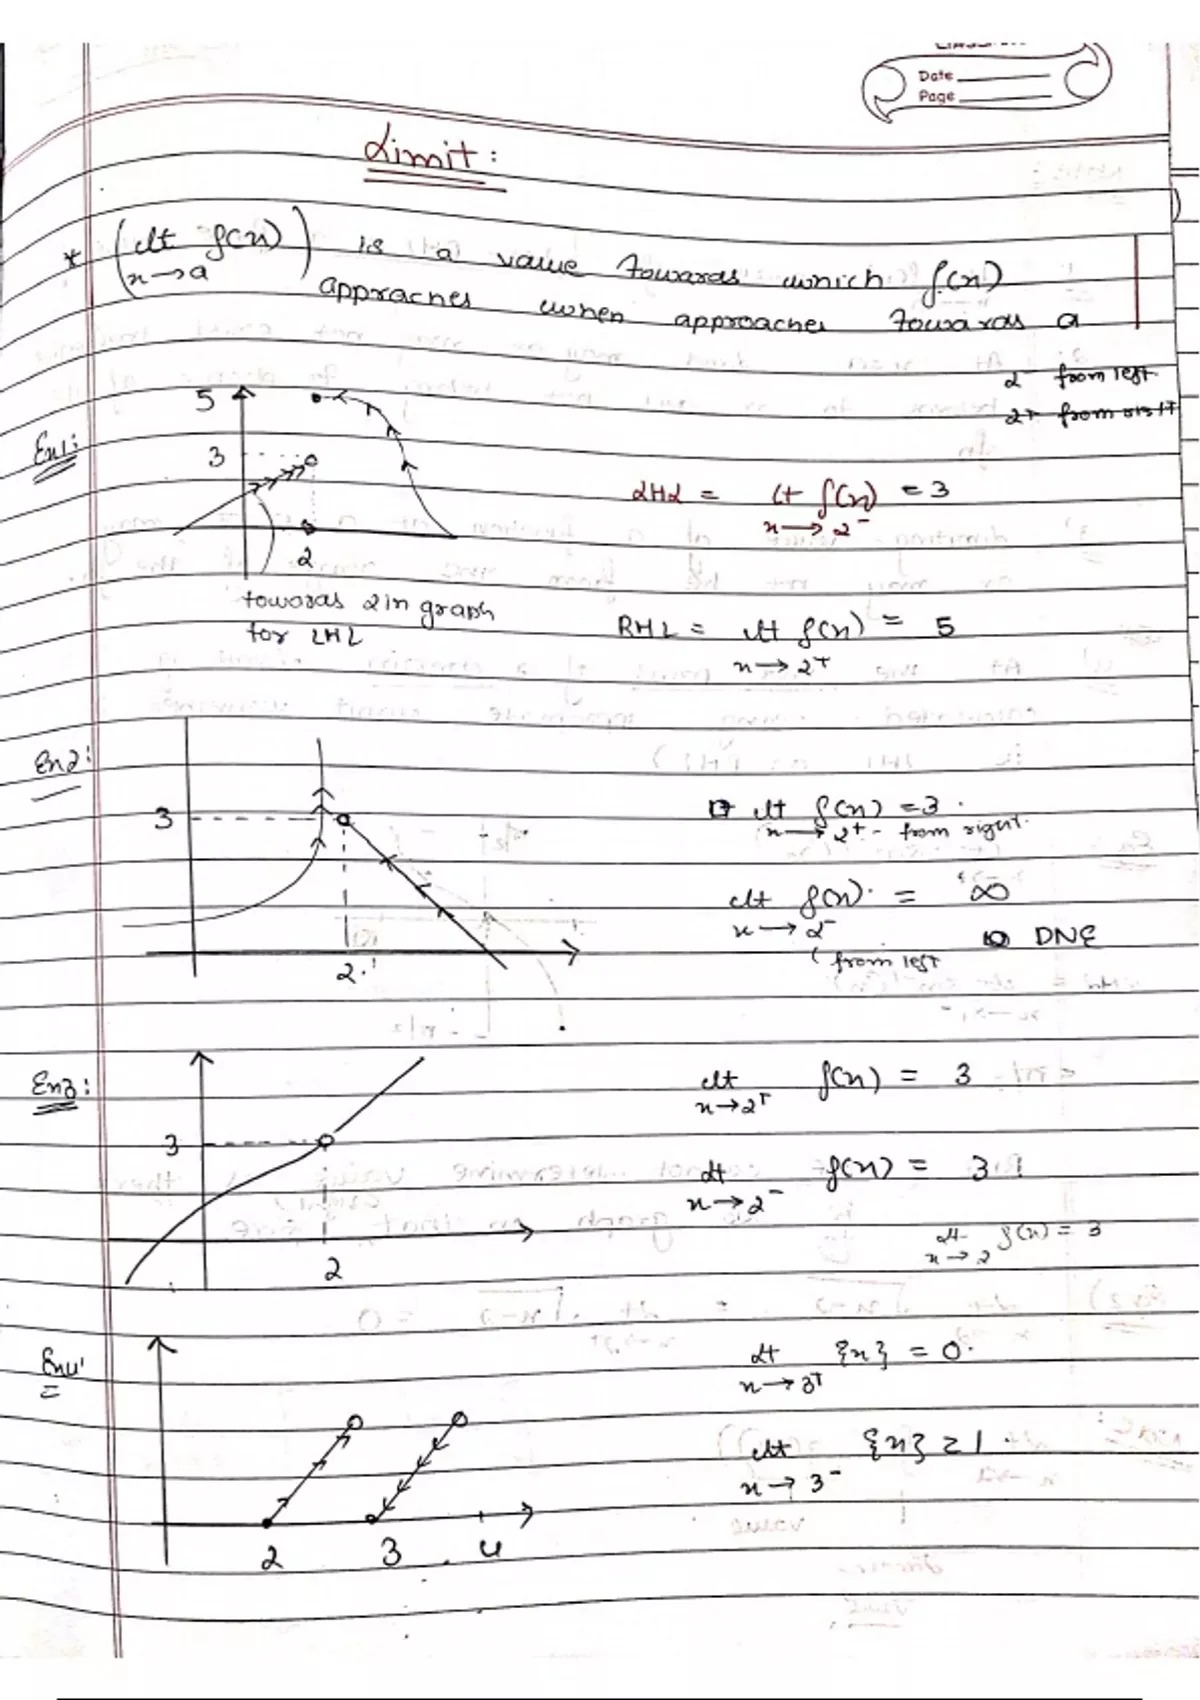 Date
Page
Limit:
* (lt f(x)) is a value towards which f(x)
x→a approaches when approaches towards a
2⁻ from left
2+ from right
Ex1:
5
3
2
towards 2 in graph
for LHL
LHL = lt f(x) = 3
x→2⁻
RHL = lt f(x) = 5
x→2⁺
Ex2:
3
2
lt f(x) = 3
x→2⁺ - from right
lt f(x) = ∞
x→2⁻
(from left
DNE
Ex3:
3
2
lt f(x) = 3
x→2⁺
lt f(x) = 3
x→2⁻
lt f(x) = 3
x→2
Ex4
2 3 4
lt {x} = 0
x→3⁺
lt {x} = 1
x→3⁻